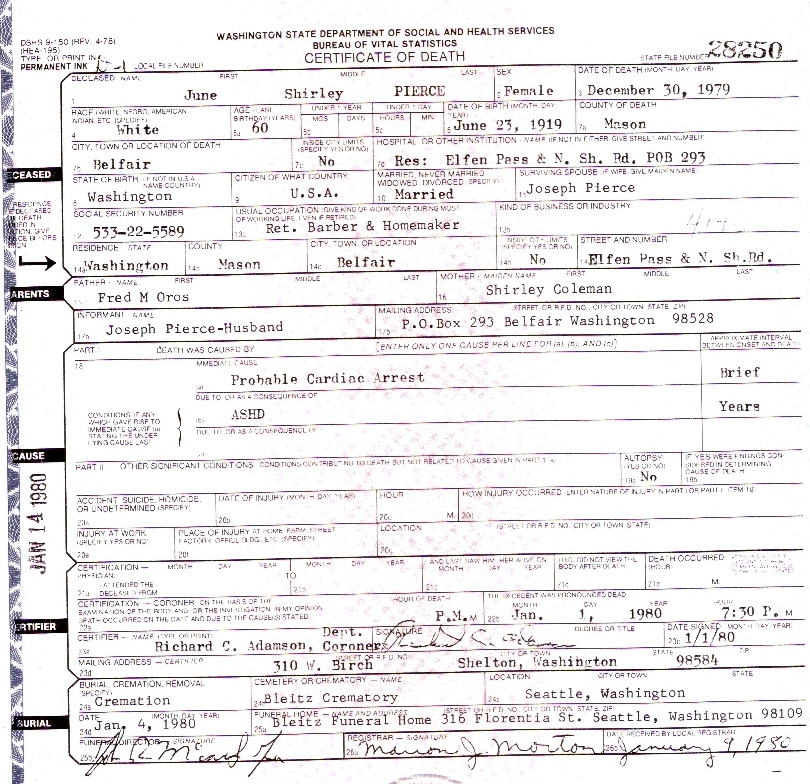 WASHINGTON STATE DEPARTMENT OF SOCIAL AND HEALTH SERVICES
BUREAU OF VITAL STATISTICS
CERTIFICATE OF DEATH
DSHS 9-150 (REV. 4-78)
(HEA-195)
TYPE, OR PRINT IN
PERMANENT INK
LOCAL FILE NUMBER
STATE FILE NUMBER 28250
DECEASED NAME FIRST MIDDLE LAST SEX DATE OF DEATH (MONTH, DAY, YEAR)
1 June Shirley PIERCE 2 Female 3 December 30, 1979
RACE (WHITE, NEGRO, AMERICAN INDIAN, ETC. (SPECIFY) AGE - LAST BIRTHDAY (YEARS) UNDER 1 YEAR UNDER 1 DAY DATE OF BIRTH (MONTH, DAY, YEAR) COUNTY OF DEATH
MOS DAYS HOURS MIN.
4 White 5a 60 5b 5c 6 June 23, 1919 7a Mason
CITY, TOWN OR LOCATION OF DEATH INSIDE CITY LIMITS (SPECIFY YES OR NO) HOSPITAL OR OTHER INSTITUTION - NAME (IF NOT IN EITHER GIVE STREET AND NUMBER)
7b Belfair 7c No 7d Res: Elfen Pass & N. Sh. Rd. POB 293
DECEASED
STATE OF BIRTH (IF NOT IN U.S.A. NAME COUNTRY) CITIZEN OF WHAT COUNTRY MARRIED, NEVER MARRIED WIDOWED DIVORCED (SPECIFY) SURVIVING SPOUSE (IF WIFE, GIVE MAIDEN NAME)
8 Washington 9 U.S.A. 10 Married 11 Joseph Pierce
SOCIAL SECURITY NUMBER USUAL OCCUPATION (GIVE KIND OF WORK DONE DURING MOST OF WORKING LIFE, EVEN IF RETIRED) KIND OF BUSINESS OR INDUSTRY
12 533-22-5589 13a Ret. Barber & Homemaker 13b
RESIDENCE STATE COUNTY CITY, TOWN, OR LOCATION INSIDE CITY LIMITS (SPECIFY YES OR NO) STREET AND NUMBER
14a Washington 14b Mason 14c Belfair 14d No 14e Elfen Pass & N. Sh.Rd.
PARENTS
FATHER - NAME FIRST MIDDLE LAST MOTHER - MAIDEN NAME FIRST MIDDLE LAST
15 Fred M Oros 16 Shirley Coleman
INFORMANT NAME MAILING ADDRESS STREET OR R.F.D. NO., CITY OR TOWN, STATE, ZIP)
17a Joseph Pierce-Husband 17b P.O.Box 293 Belfair Washington 98528
PART I DEATH WAS CAUSED BY [ENTER ONLY ONE CAUSE PER LINE FOR (a), (b), AND (c)] APPROXIMATE INTERVAL BETWEEN ONSET AND DEATH
18 IMMEDIATE CAUSE
(a) Probable Cardiac Arrest Brief
DUE TO OR AS A CONSEQUENCE OF
(b) ASHD Years
CONDITIONS IF ANY WHICH GAVE RISE TO IMMEDIATE CAUSE (a) STATING THE UNDERLYING CAUSE LAST
DUE TO OR AS A CONSEQUENCE OF
CAUSE
PART II OTHER SIGNIFICANT CONDITIONS CONDITIONS CONTRIBUTING TO DEATH BUT NOT RELATED TO CAUSE GIVEN IN PART I (a) AUTOPSY (YES OR NO) IF YES WERE FINDINGS CONSIDERED IN DETERMINING CAUSE OF DEATH
19a No 19b
ACCIDENT, SUICIDE, HOMICIDE, OR UNDETERMINED (SPECIFY) DATE OF INJURY (MONTH, DAY, YEAR) HOUR HOW INJURY OCCURRED (ENTER NATURE OF INJURY IN PART I OR PART II, ITEM 18)
20a 20b 20c M. 20d
INJURY AT WORK (SPECIFY YES OR NO) PLACE OF INJURY AT HOME, FARM, STREET FACTORY, OFFICE BLDG., ETC. (SPECIFY) LOCATION (STREET OR R.F.D. NO., CITY OR TOWN, STATE)
20e 20f 20g
JAN 14 1980
CERTIFICATION - PHYSICIAN: MONTH DAY YEAR TO MONTH DAY YEAR AND LAST SAW HIM/HER ALIVE ON MONTH DAY YEAR I DID/DID NOT VIEW THE BODY AFTER DEATH DEATH OCCURRED (HOUR)
21a I ATTENDED THE DECEASED FROM 21b 21c 21d M.
CERTIFICATION - CORONER: ON THE BASIS OF THE EXAMINATION OF THE BODY AND/OR THE INVESTIGATION IN MY OPINION DEATH OCCURRED ON THE DATE AND DUE TO THE CAUSE(S) STATED HOUR OF DEATH THE DECEDENT WAS PRONOUNCED DEAD MONTH DAY YEAR HOUR
22a P.M. M 22b Jan. 1, 1980 7:30 P. M
CERTIFIER
CERTIFIER - NAME (TYPE OR PRINT) SIGNATURE DEGREE OR TITLE DATE SIGNED (MONTH, DAY, YEAR)
23a Richard C. Adamson, Dept. Coroner 23c 1/1/80
MAILING ADDRESS - CERTIFIER STREET OR R.F.D. NO. CITY OR TOWN STATE ZIP
23d 310 W. Birch Shelton, Washington 98584
BURIAL, CREMATION, REMOVAL (SPECIFY) CEMETERY OR CREMATORY - NAME LOCATION CITY OR TOWN STATE
24a Cremation 24b Bleitz Crematory 24c Seattle, Washington
BURIAL
DATE (MONTH, DAY, YEAR) FUNERAL HOME - NAME AND ADDRESS (STREET OR R.F.D. NO., CITY OR TOWN, STATE, ZIP)
24d Jan. 4, 1980 25a Bleitz Funeral Home 316 Florentia St. Seattle, Washington 98109
FUNERAL DIRECTOR - SIGNATURE REGISTRAR - SIGNATURE DATE RECEIVED BY LOCAL REGISTRAR
25b 26a Marion J. Morton 26b January 9, 1980